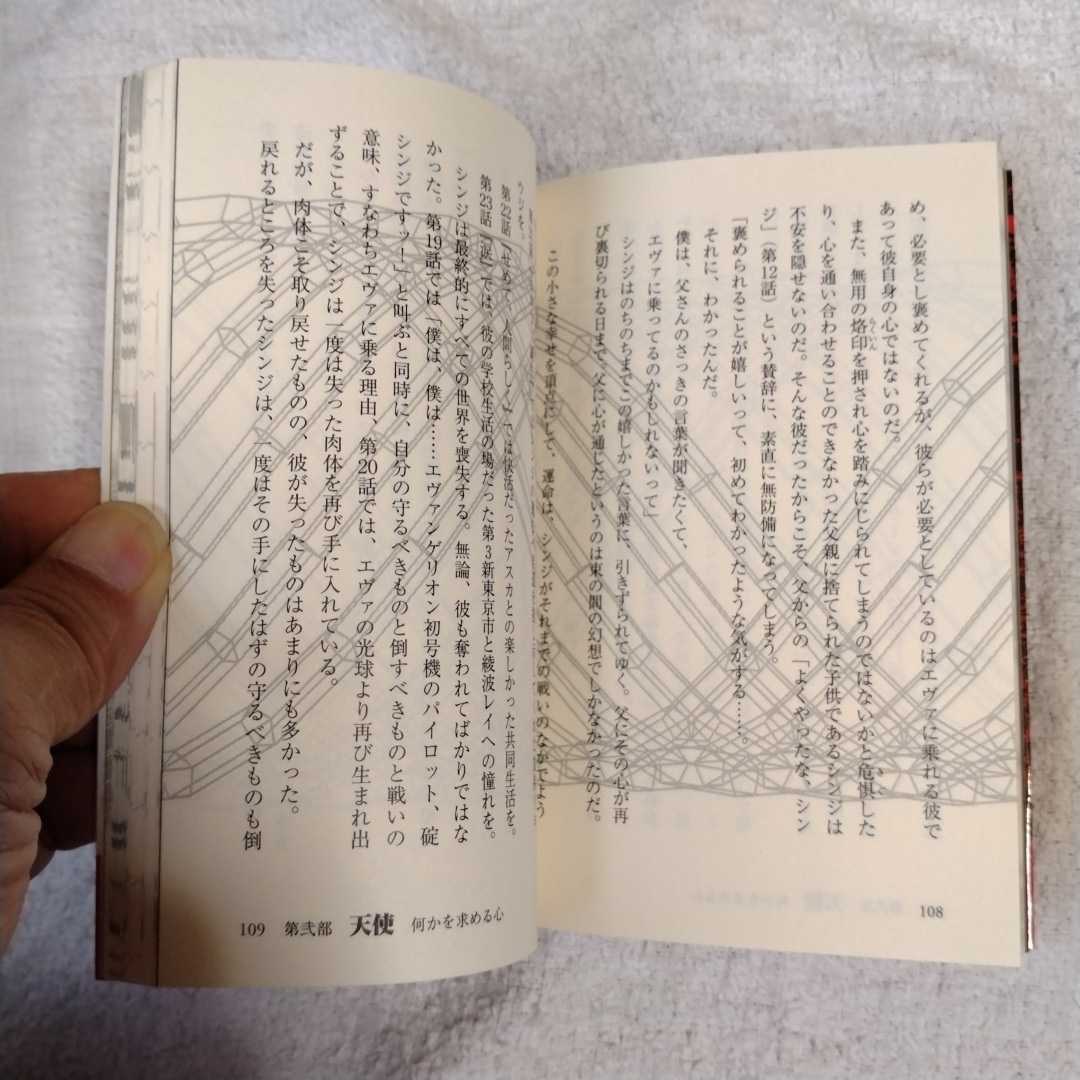 め、必要とし褒めてくれるが、彼らが必要としているのはエヴァに乗れる彼で
あって彼自身の心ではないのだ。
また、無用の烙印を押され心を踏みにじられてしまうのではないかと危惧した
り、心を通い合わせることのできなかった父親に捨てられた子供であるシンジは
不安を隠せないのだ。そんな彼だったからこそ、父からの「よくやったな、シン
ジ」(第12話)という賛辞に、素直に無防備になってしまう。
「褒められることが嬉しいって、初めてわかったような気がする……。
それに、わかったんだ。
僕は、父さんのさっきの言葉が聞きたくて、
エヴァに乗ってるのかもしれないって」
シンジはのちのちまでこの嬉しかった言葉に、引きずられてゆく。父にその心が再
び裏切られる日まで、父に心が通じたというのは束の間の幻想でしかなかったのだ。
この小さな幸せを頂点にして、運命は、シンジがそれまでの戦いのなかでよう
108
ウジを。
第22話「せめて、人間らしく」では快活だったアスカとの楽しかった共同生活を。
第23話「涙」では、彼の学校生活の場だった第3新東京市と綾波レイへの憧れを。
シンジは最終的にすべての世界を喪失する。無論、彼も奪われてばかりではな
かった。第19話では「僕は、僕は……エヴァンゲリオン初号機のパイロット、碇
シンジですッー」と叫ぶと同時に、自分の守るべきものと倒すべきものと戦いの
意味、すなわちエヴァに乗る理由、第20話では、エヴァの光球より再び生まれ出
ずることで、シンジは一度は失った肉体を再び手に入れている。
だが、肉体こそ取り戻せたものの、彼が失ったものはあまりにも多かった。
戻れるところを失ったシンジは、一度はその手にしたはずの守るべきものも倒
109 第弐部 天使 何かを求める心